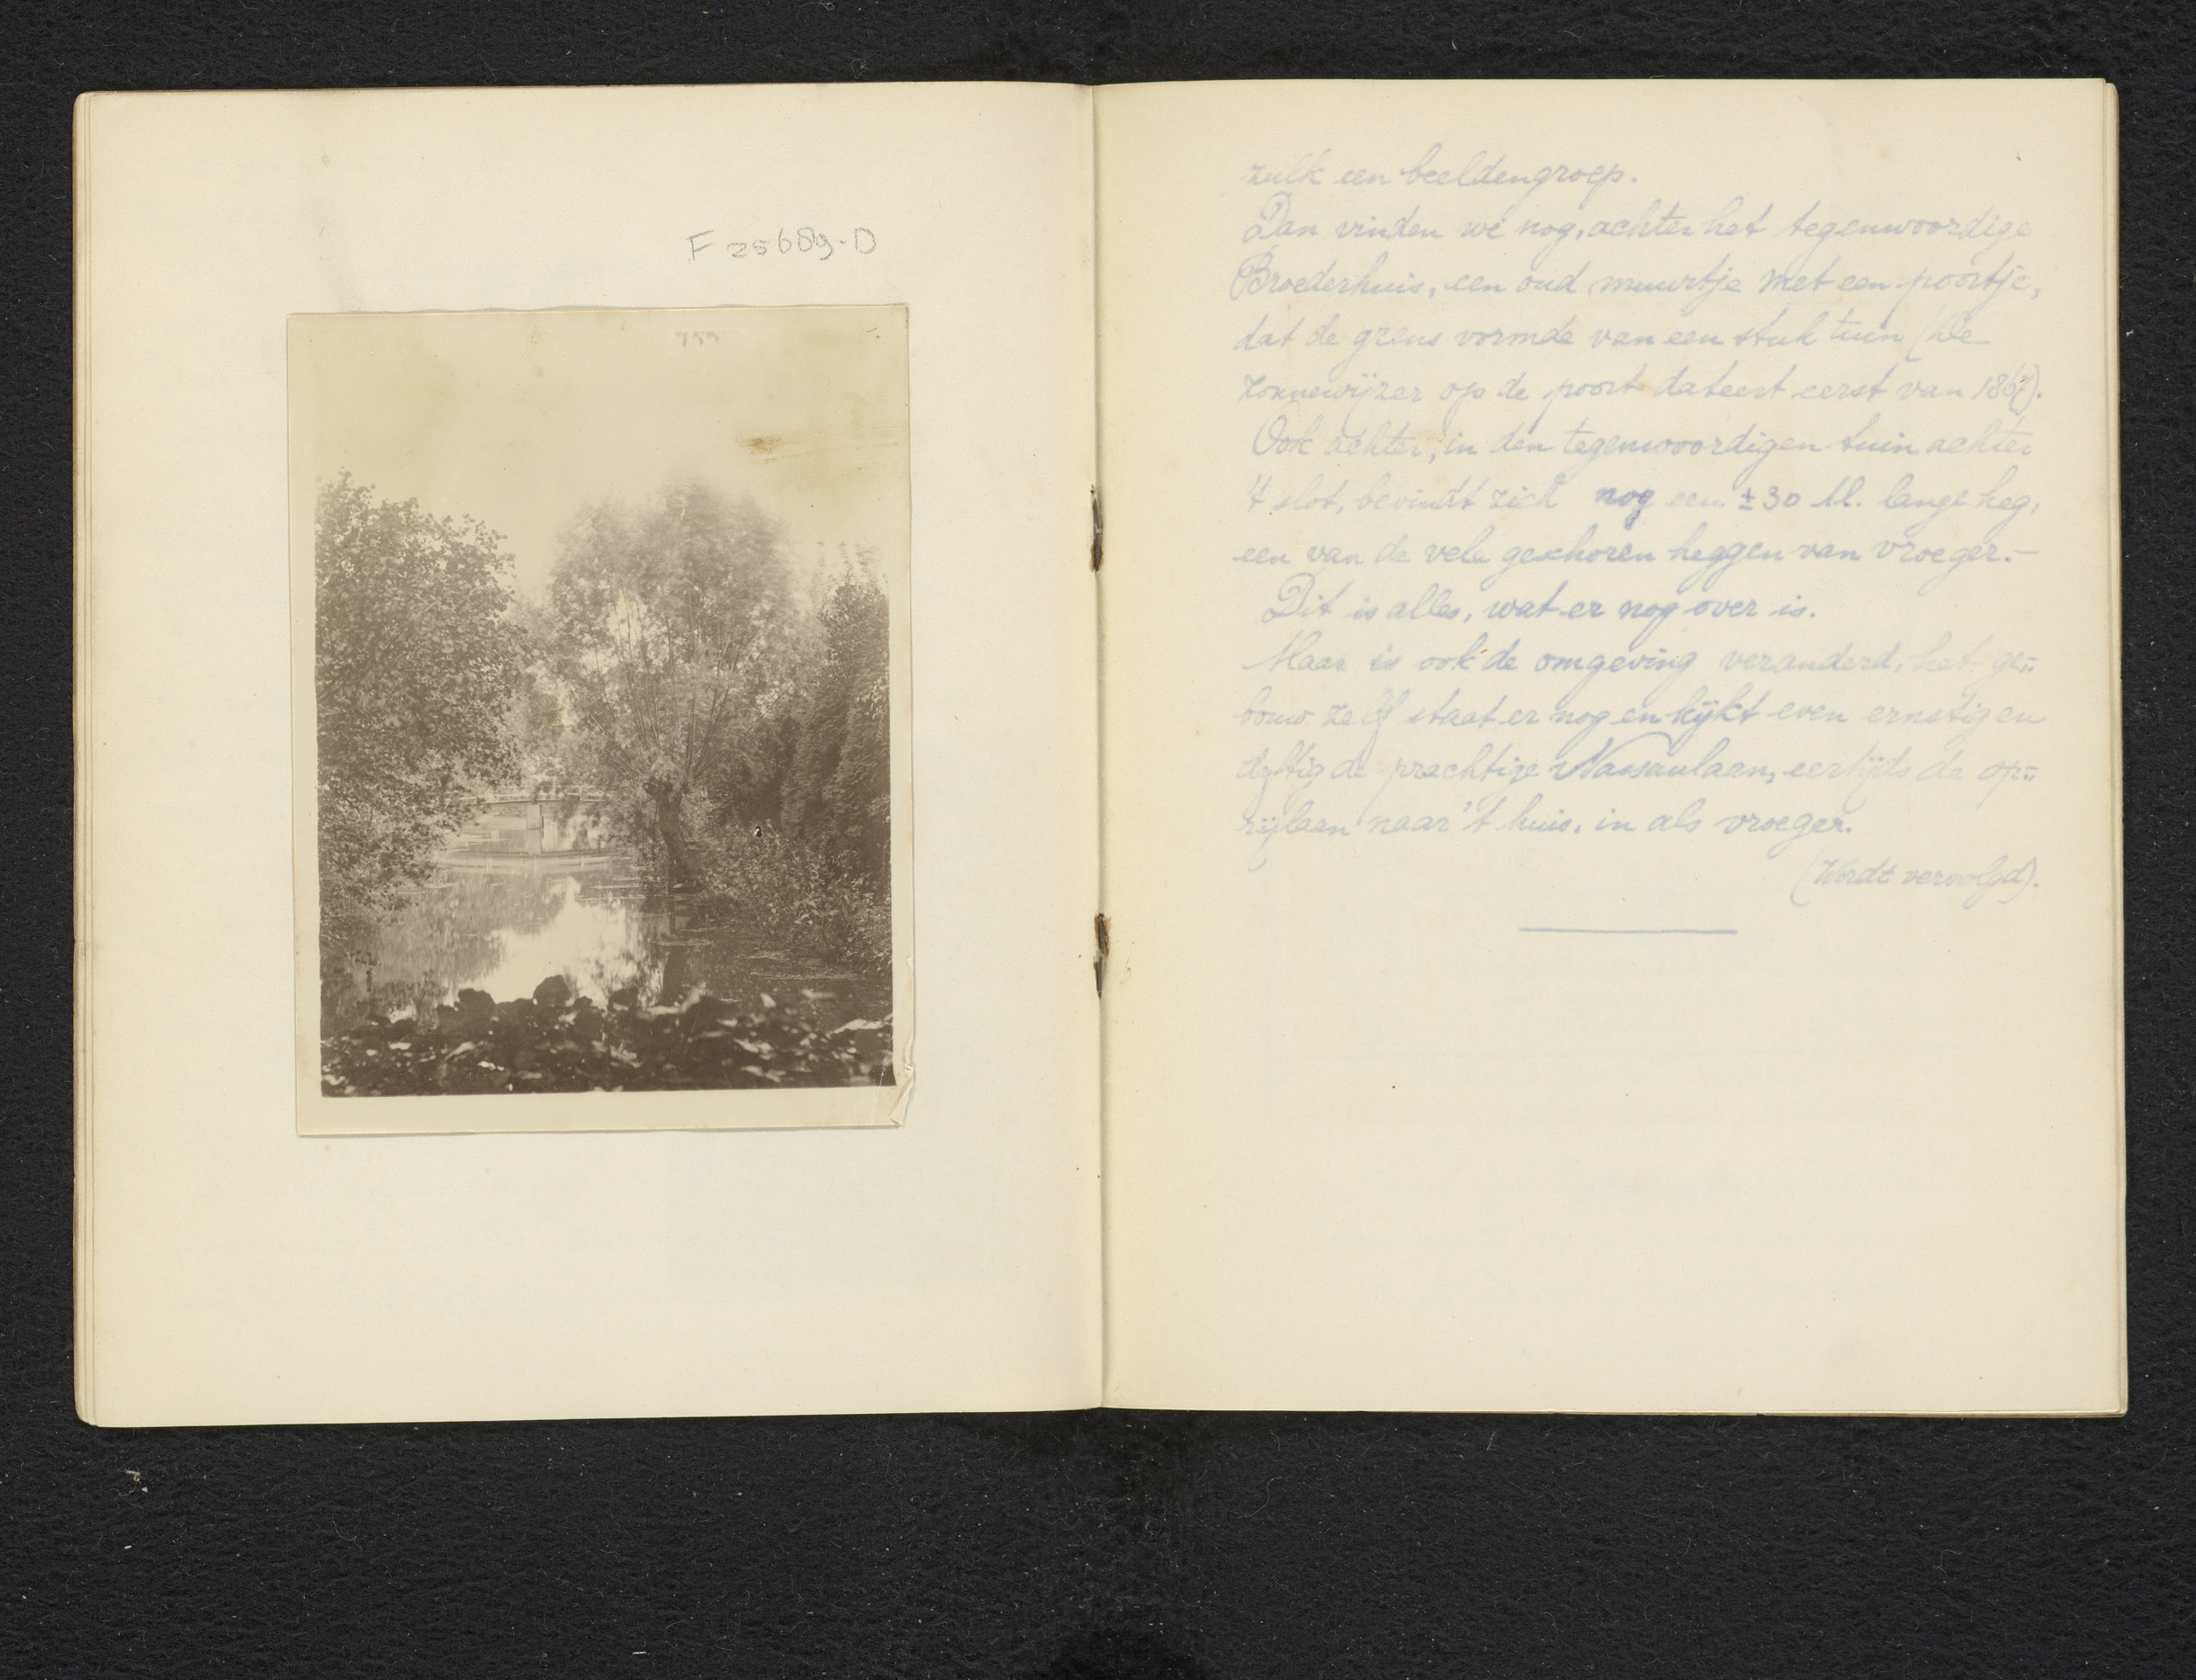 F 25689-D
zulk een beeldengroep.
Dan vinden we nog, achter het tegenwoordige
Broederhuis, een oud muurtje met een poortje,
dat de grens vormde van een stuk tuin (De
zonnewijzer op de poort dateert eerst van 1867).
Ook achter, in den tegenwoordigen tuin achter
't slot, bevindt zich nog een ± 30 M. lange heg,
een van de vele geschoren heggen van vroeger.—
Dit is alles, wat er nog over is.
Maar is ook de omgeving veranderd, het ge=
bouw zelf staat er nog en kijkt even ernstig en
deftig de prachtige Nassaulaan, eertijds de op=
rijlaan naar 't huis, in als vroeger.
(Wordt vervolgd).